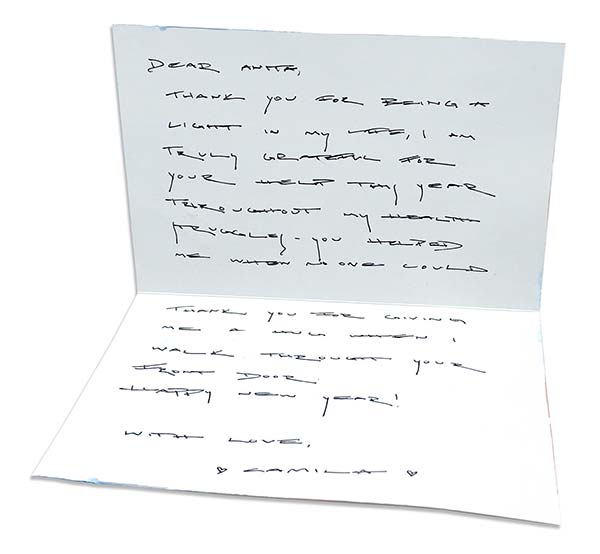 DEAR ANITA,
THANK YOU FOR BEING A
LIGHT IN MY LIFE, I AM
TRULY GRATEFUL FOR
YOUR HELP THIS YEAR
THROUGHOUT MY HEALTH
STRUGGLES - YOU HELPED
ME WHEN NO ONE COULD
THANK YOU FOR GIVING
ME A HUG WHEN I
WALK THROUGHT YOUR
FRONT DOOR.
HAPPY NEW YEAR!
WITH LOVE,
♡ CAMILA ♡